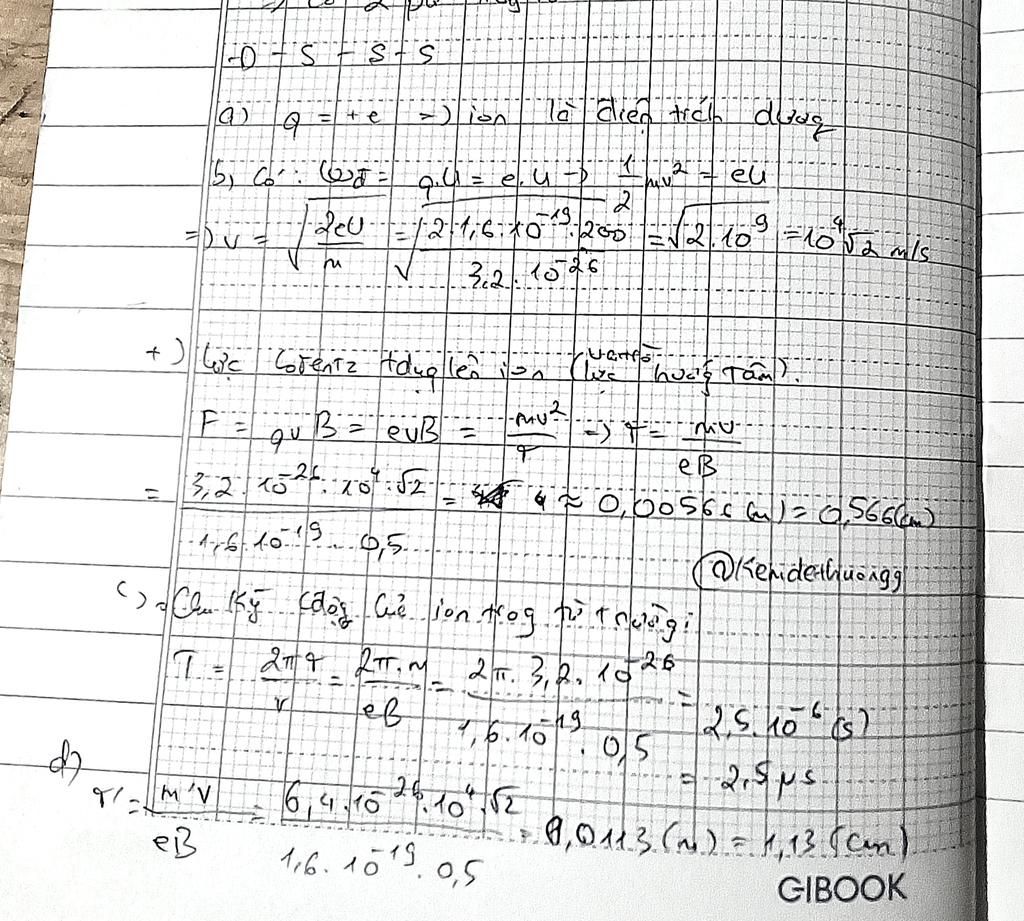 -D - S - S - S
a) q = +e => ion là điện tích dương
b, Có: Wđ = q.U = e.U -> 1/2 mv² = eU
=> v = √(2eU/m) = √(2.1,6.10⁻¹⁹.200 / 3,2.10⁻²⁶) = √(2.10⁹) = 10⁴√2 m/s
+) Lực Lorentz tdụng lên ion (lực hướng tâm).
F = qvB = evB = mv²/r -> r = mv/eB
= 3,2.10⁻²⁶.10⁴.√2 / 1,6.10⁻¹⁹.0,5 = ≈ 0,00566 (m) = 0,566 (cm)
@Kenidethuongg
c) Chu kỳ cđộng của ion trog từ trường:
T = 2πr/v = 2π.m/eB = 2π.3,2.10⁻²⁶ / 1,6.10⁻¹⁹.0,5 = 2,5.10⁻⁶ (s)
= 2,5 μs
d) r' = m'v/eB = 6,4.10⁻²⁶.10⁴.√2 / 1,6.10⁻¹⁹.0,5 = 0,0113 (m) = 1,13 (cm)
GIBOOK